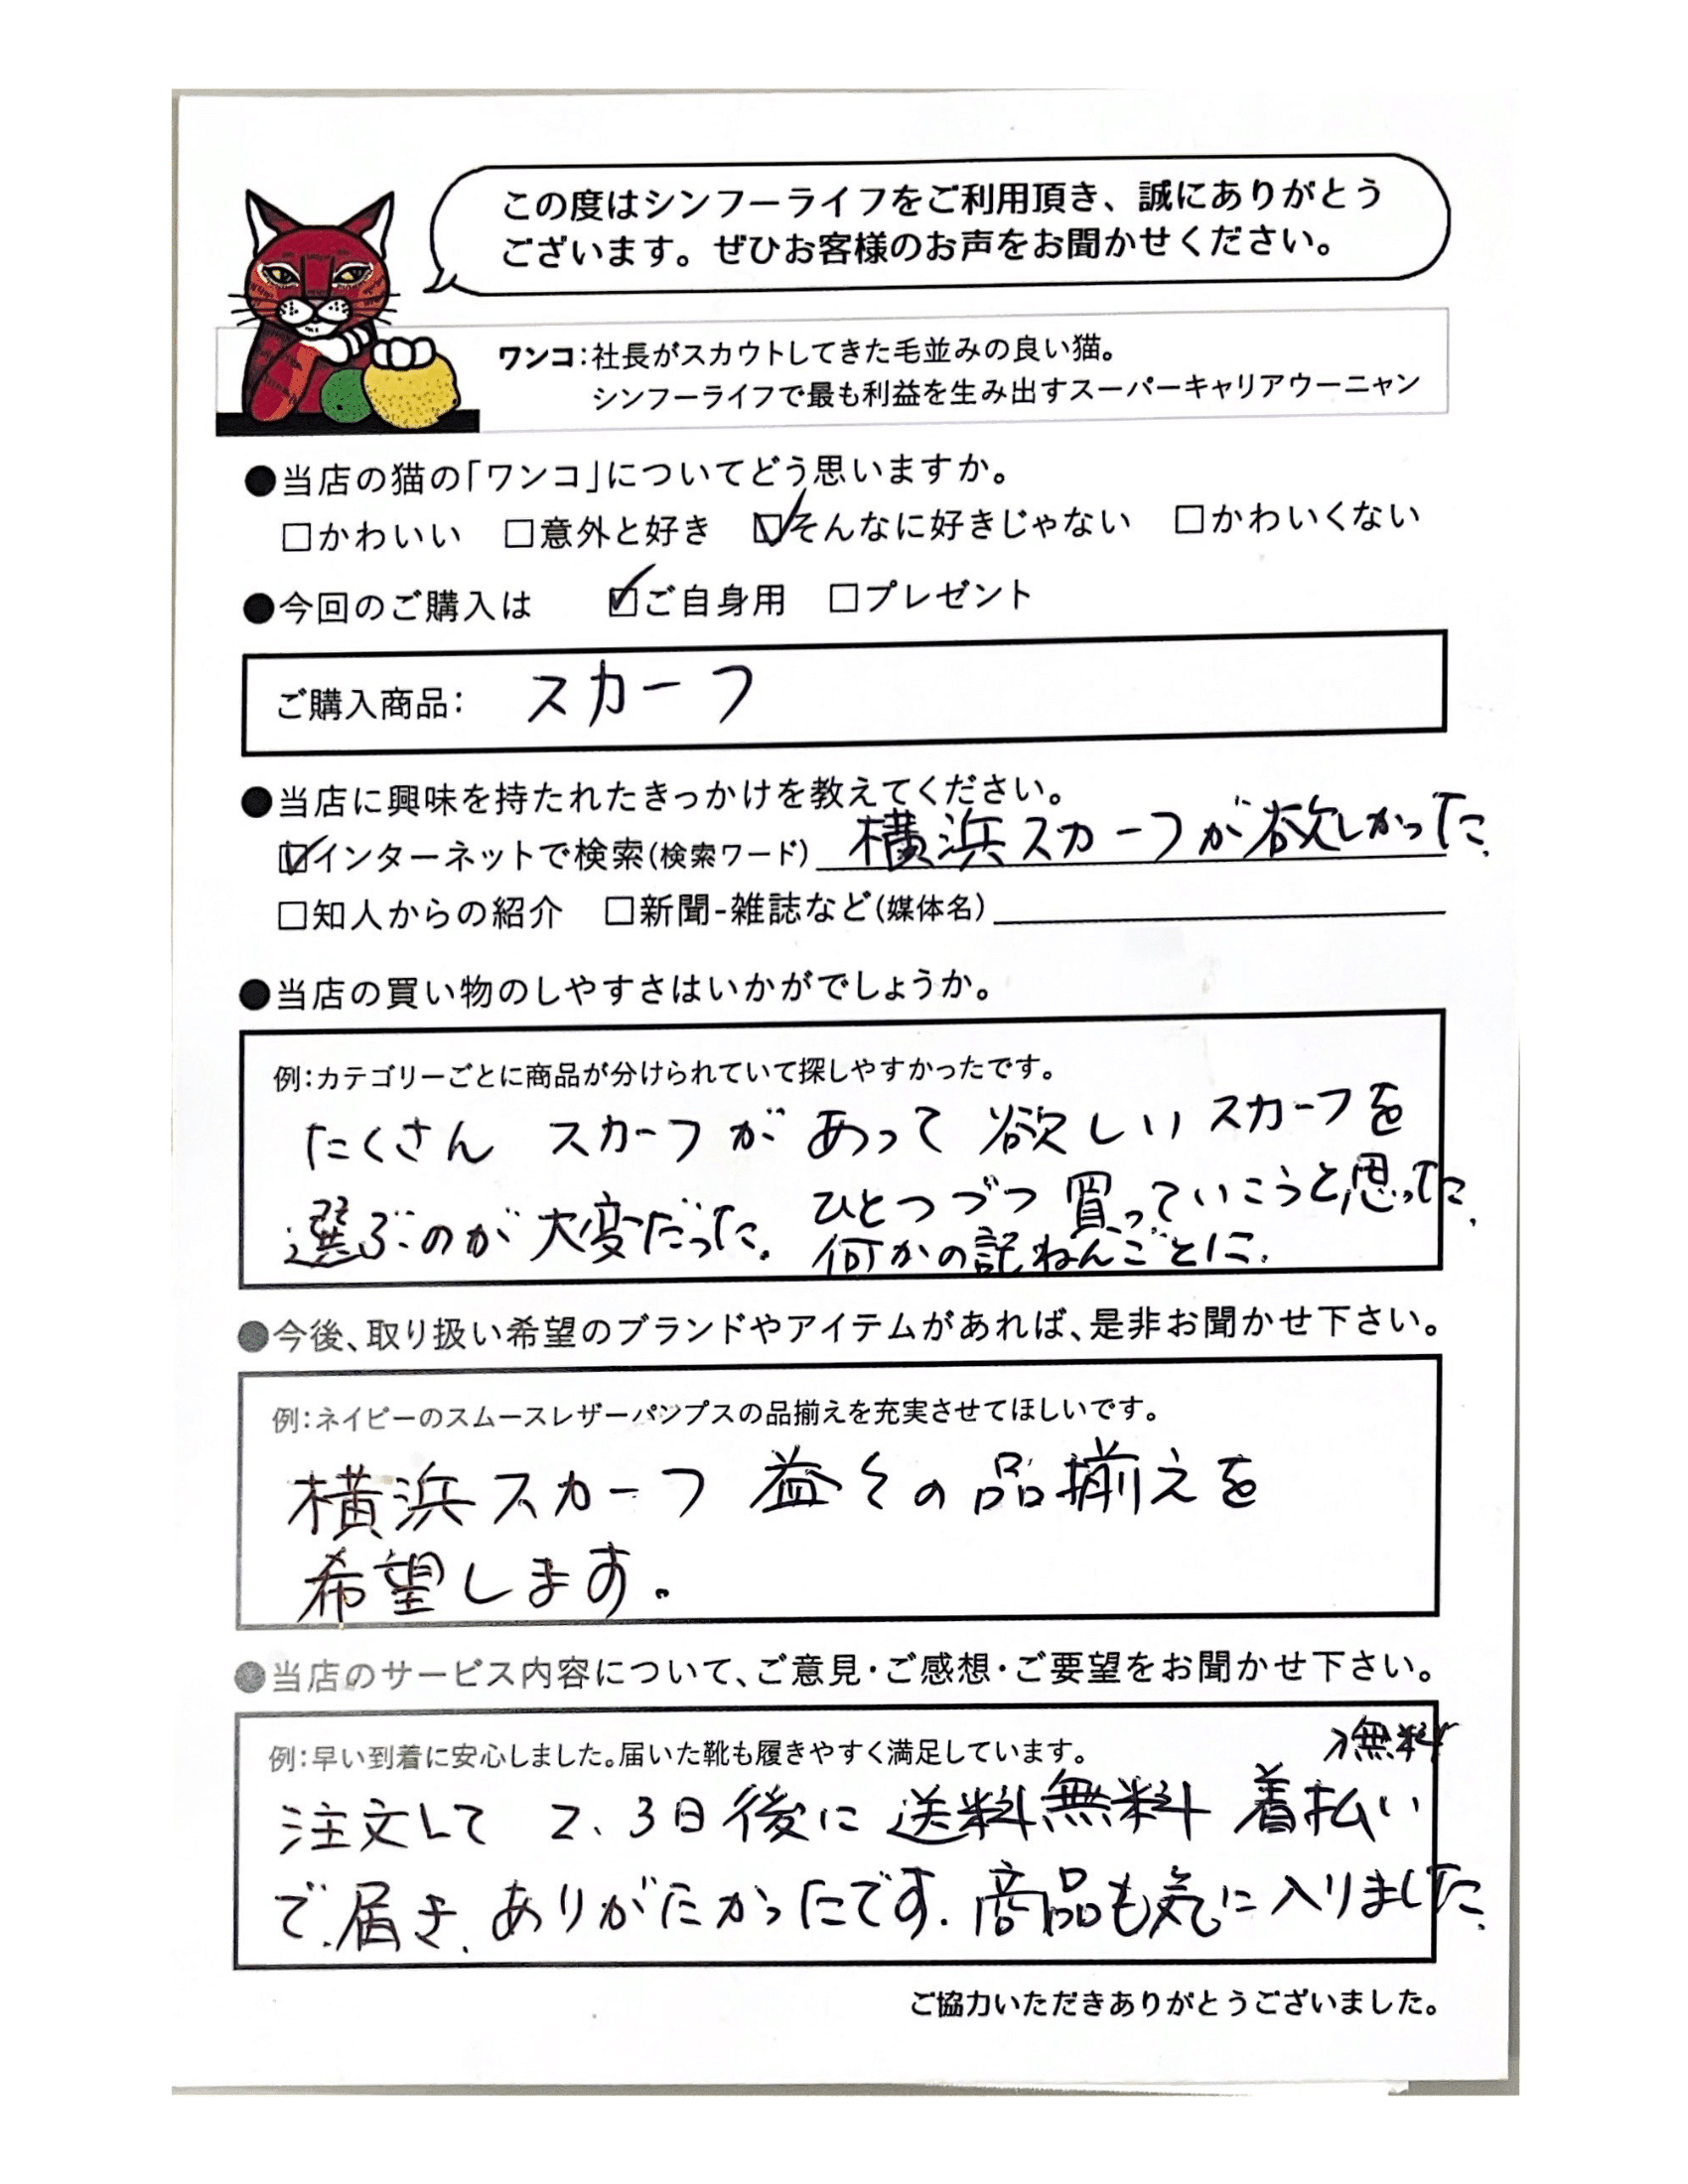 この度はシンフーライフをご利用頂き、誠にありがとう
ございます。ぜひお客様のお声をお聞かせください。
ワンコ：社長がスカウトしてきた毛並みの良い猫。
シンフーライフで最も利益を生み出すスーパーキャリアウーニャン
●当店の猫の「ワンコ」についてどう思いますか。
□かわいい □意外と好き ☑そんなに好きじゃない □かわいくない
●今回のご購入は ☑ご自身用 □プレゼント
ご購入商品： スカーフ
●当店に興味を持たれたきっかけを教えてください。
☑インターネットで検索(検索ワード) 横浜スカーフが欲しかった.
□知人からの紹介 □新聞-雑誌など(媒体名)
●当店の買い物のしやすさはいかがでしょうか。
例：カテゴリーごとに商品が分けられていて探しやすかったです。
たくさん スカーフが あって 欲しい スカーフを
選ぶのが 大変だった. ひとつづつ 買っていこうと思った.
何かの記ねんごとに.
●今後、取り扱い希望のブランドやアイテムがあれば、是非お聞かせ下さい。
例：ネイビーのスムースレザーパンプスの品揃えを充実させてほしいです。
横浜スカーフ 益々の品揃えを
希望します。
●当店のサービス内容について、ご意見・ご感想・ご要望をお聞かせ下さい。
例：早い到着に安心しました。届いた靴も履きやすく満足しています。
無料
注文して 2、3日後に 送料無料 着払い
で.届き. ありがたかったです. 商品も気に入りました.
ご協力いただきありがとうございました。